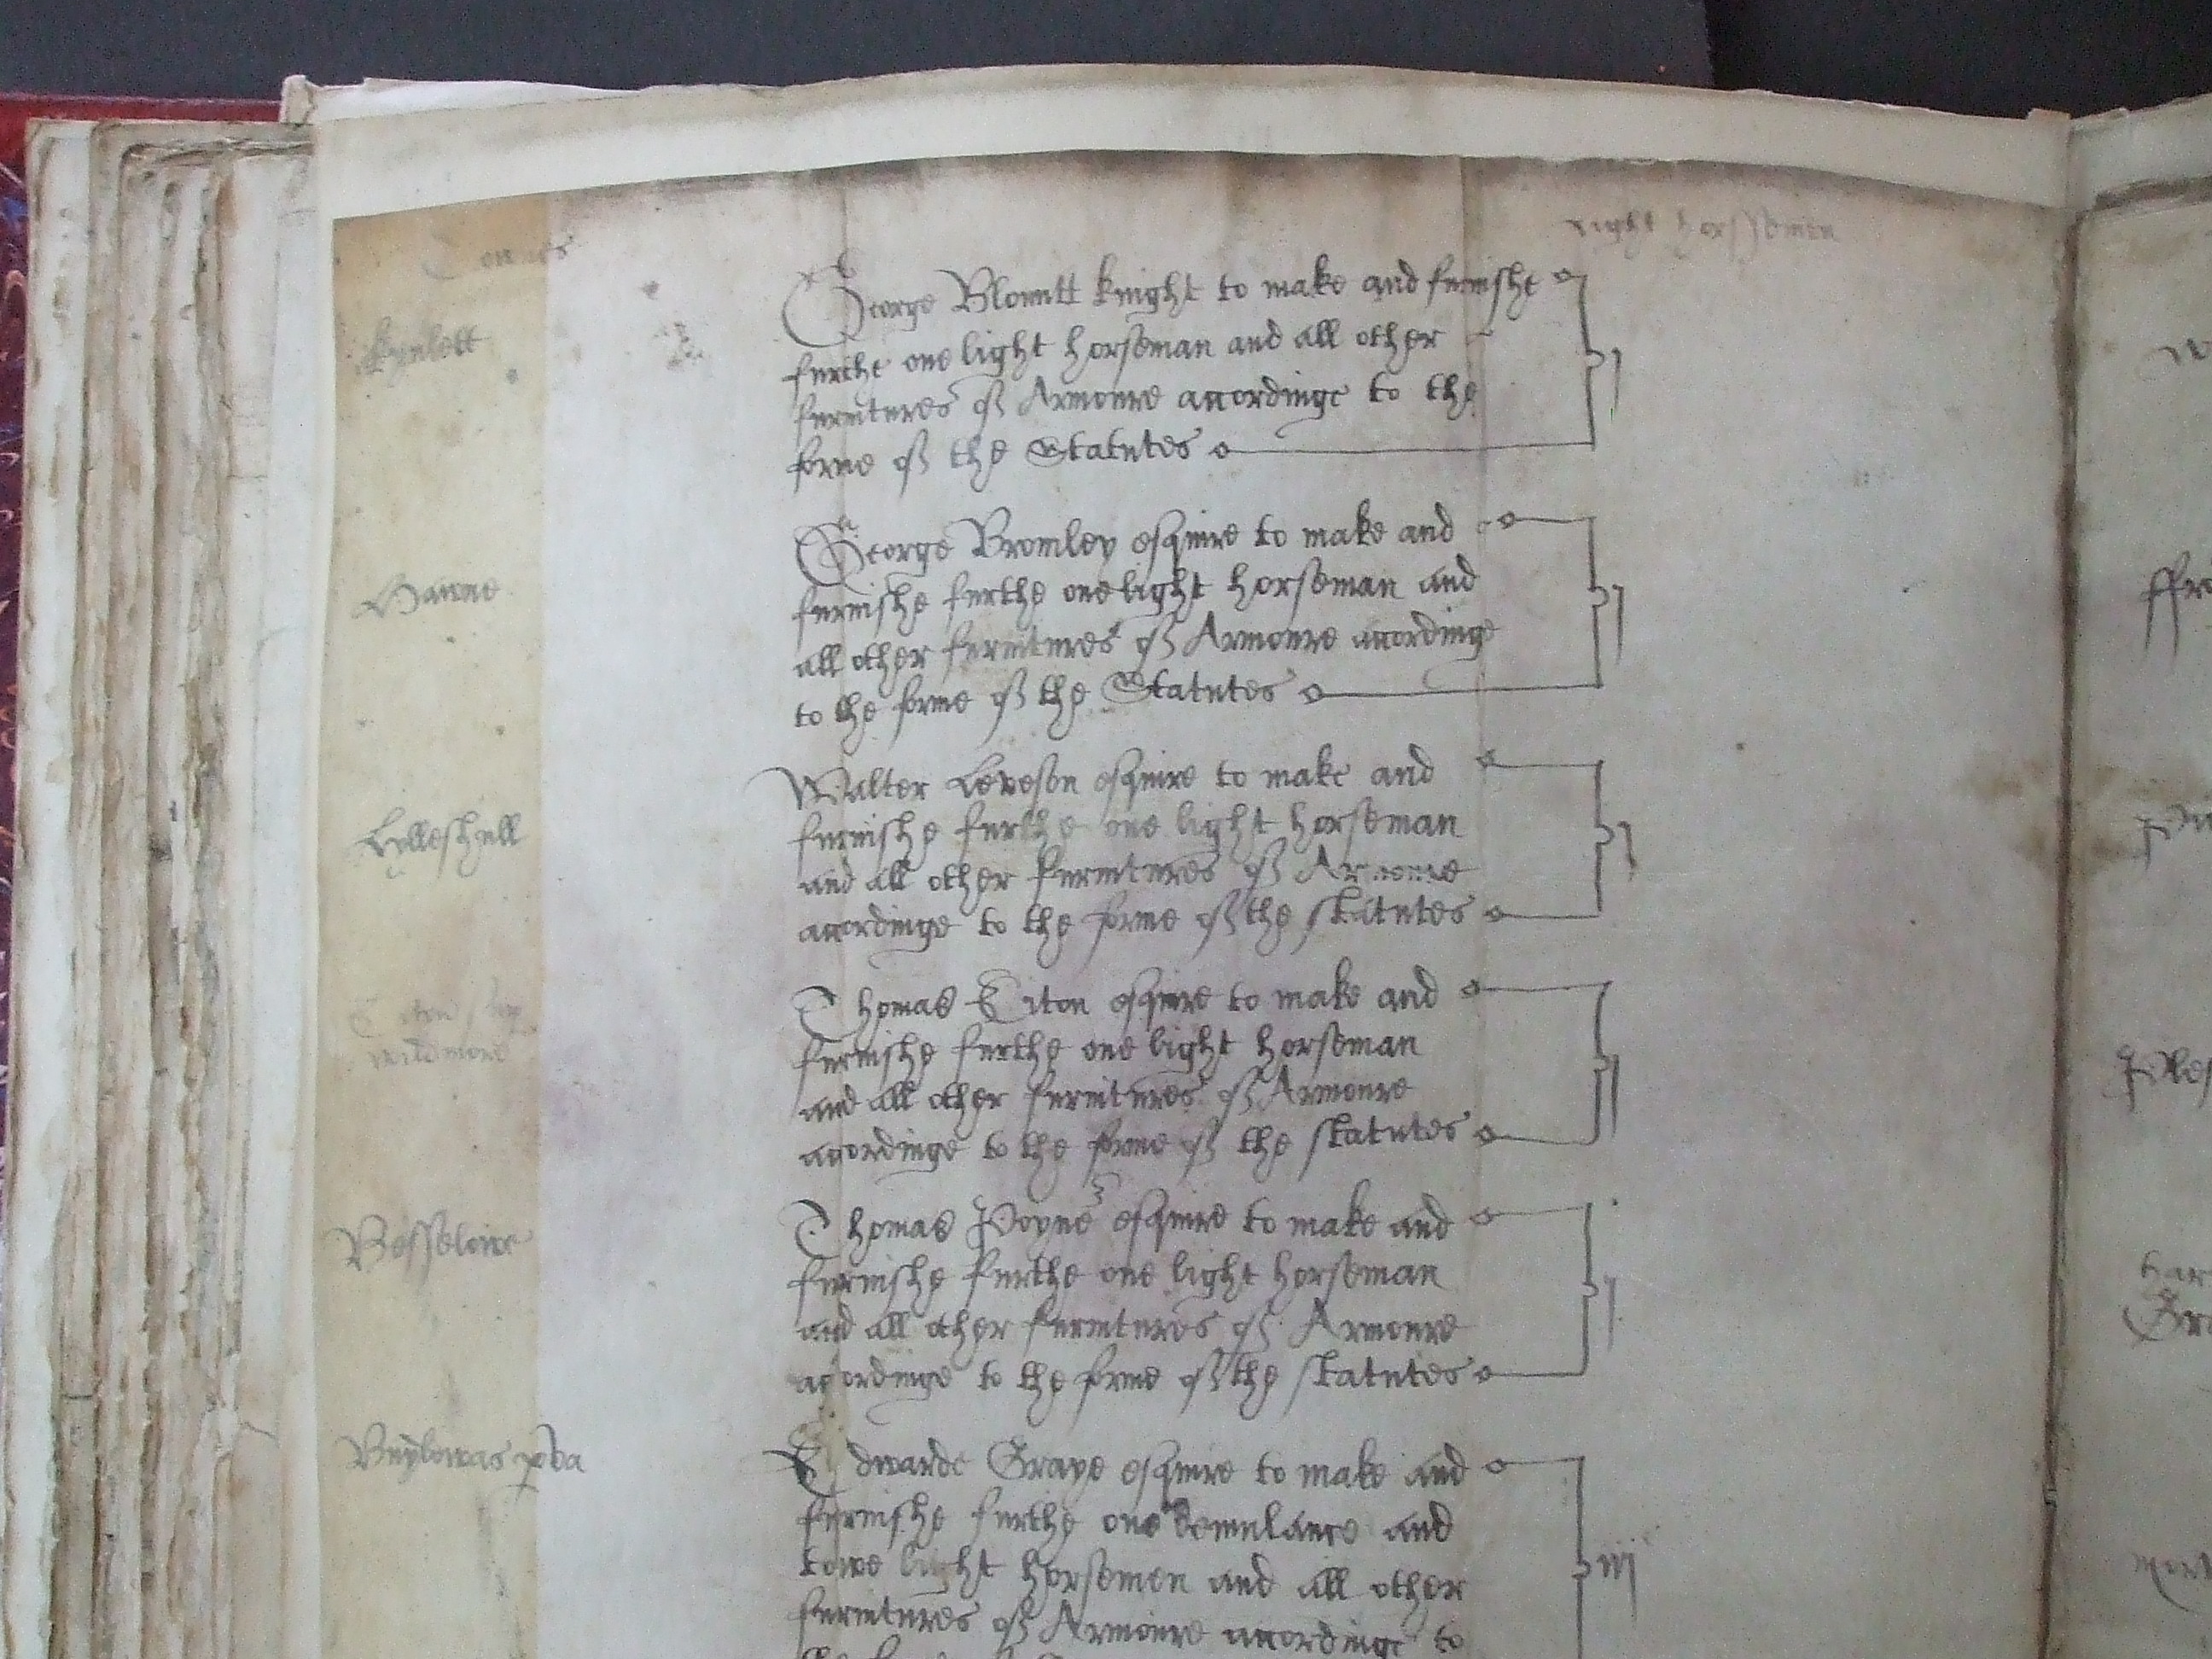 Townes
light horssemen
Kynlett
George Blountt knight to make and furnishe
furthe one light horseman and all other
furnitures of Armoure accordinge to the
forme of the Statutes
j
Hawne
George Bromley esquire to make and
furnishe furthe one light horseman and
all other furnitures of Armoure accordinge
to the forme of the Statutes
j
Lylleshull
Walter Leveson esquire to make and
furnishe furthe one light horseman
and all other furnitures of Armoure
accordinge to the forme of the statutes
j
Eiton
wildmore
Thomas Eiton esquire to make and
furnishe furthe one light horseman
and all other furnitures of Armoure
accordinge to the forme of the statutes
j
Besselowe
Thomas Poyner esquire to make and
furnishe furthe one light horseman
and all other furnitures of Armoure
accordinge to the forme of the statutes
j
Buyldwas
Edwarde Graye esquire to make and
furnishe furthe one demilance and
towe light horsemen and all other
furnitures of Armoure accordinge to
iij